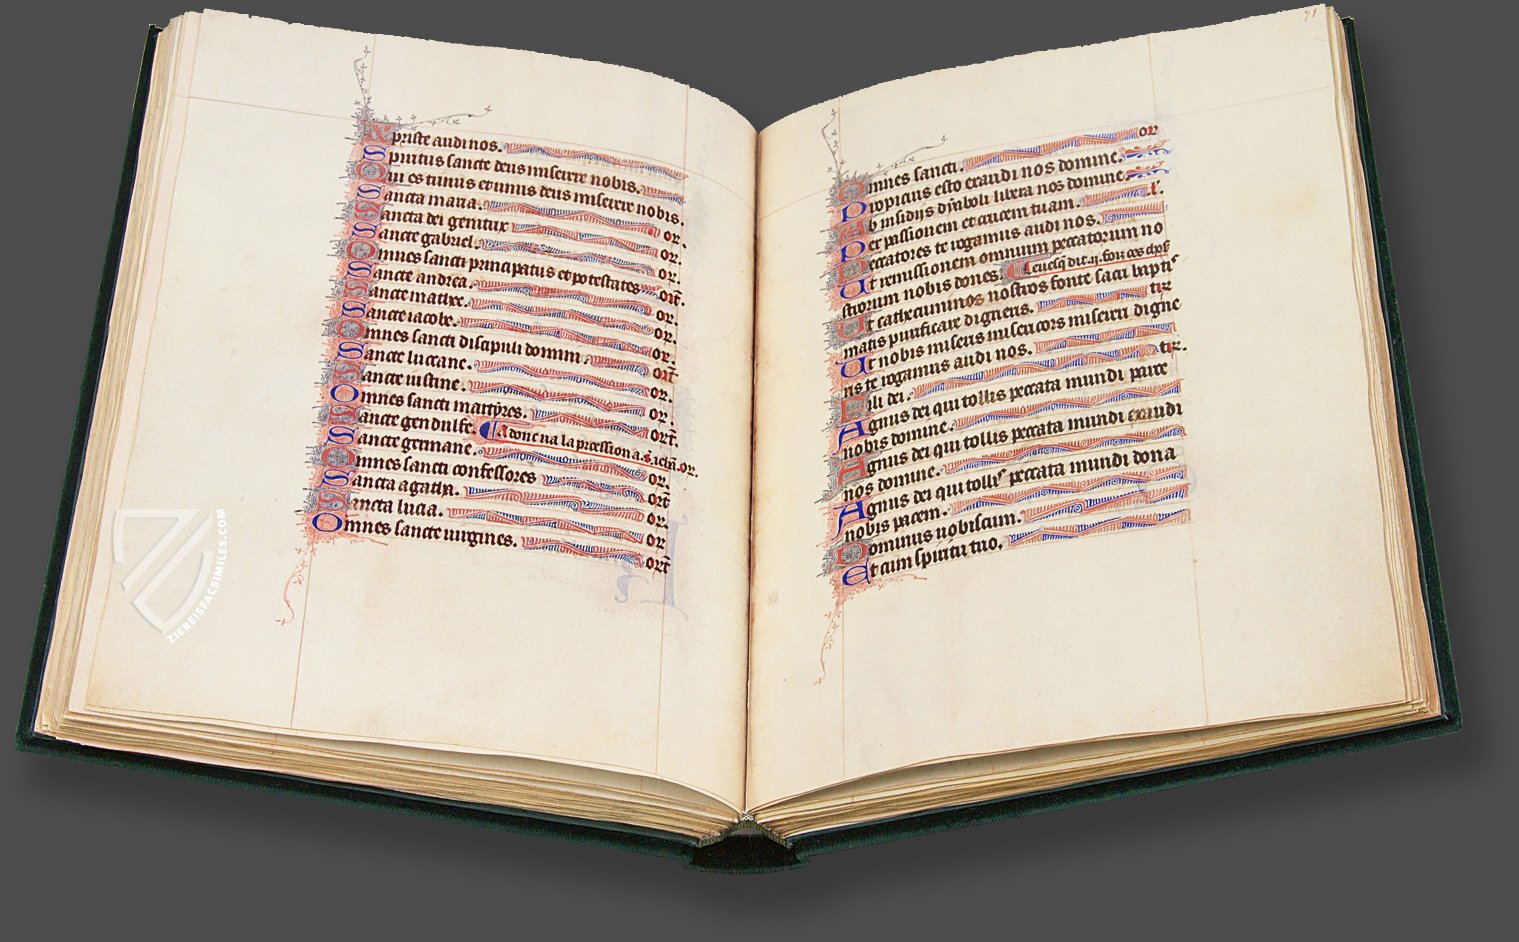 Xpriste audi nos.
Spiritus sancte deus miserere nobis.
Qui es trinus et unus deus miserere nobis.
Sancta maria. or.
Sancta dei genitrix or.
Sancte gabriel. or.
Omnes sancti principatus et potestates or̄t.
Sancte andrea. or.
Sancte mathee. or.
Sancte iacobe. or.
Omnes sancti discipuli domini. or̄t
Sancte luciane. or.
Sancte iustine. or.
Omnes sancti martyres. or̄t.
Sancte gendulfe. Adonc ua la procession a. or.
Sancte germane. or.
Omnes sancti confessores or̄t
Sancta agatha. or.
Sancta lucia. or
Omnes sancte uirgines. or̄t
71
Omnes sancti. or
Propicius esto exaudi nos domine.
Ab insidijs dyaboli libera nos domine.
Per passionem et crucem tuam. l.
Peccatores te rogamus audi nos.
Ut remissionem omnium peccatorum no
strorum nobis dones.
Ut cathecuminos nostros fonte sacri baptis
matis purificare digneris. te r
Ut nobis miseris misericors misereri digne
ris te rogamus audi nos.
Fili dei. te r.
Agnus dei qui tollis peccata mundi parce
nobis domine.
Agnus dei qui tollis peccata mundi exaudi
nos domine.
Agnus dei qui tollis peccata mundi dona
nobis pacem.
Dominus nobiscum.
Et cum spiritu tuo.
ZIEREISFACSIMILES.COM